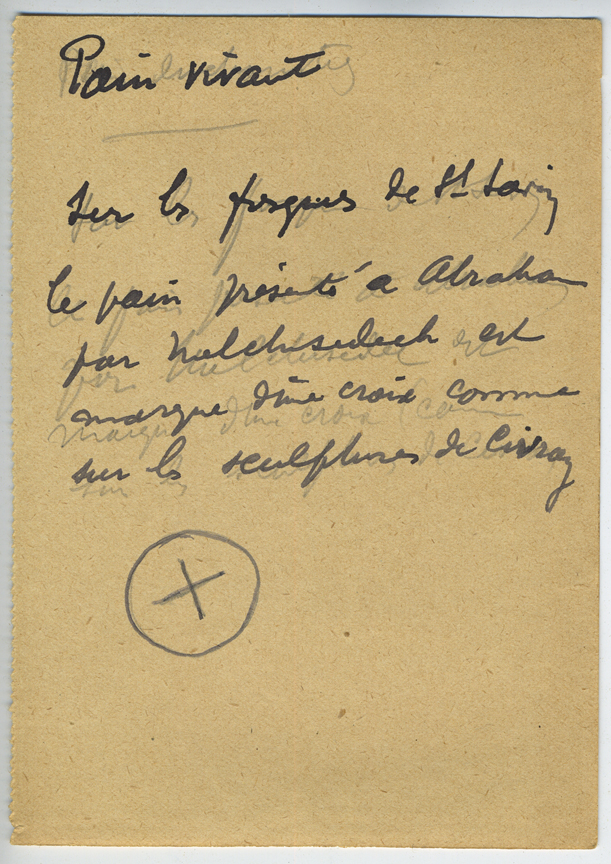 Pain vivant
Sur les fresques de St Savin
le pain présenté à Abraham
par Melchisedech est
marqué d'une croix comme
sur les sculptures de Civray